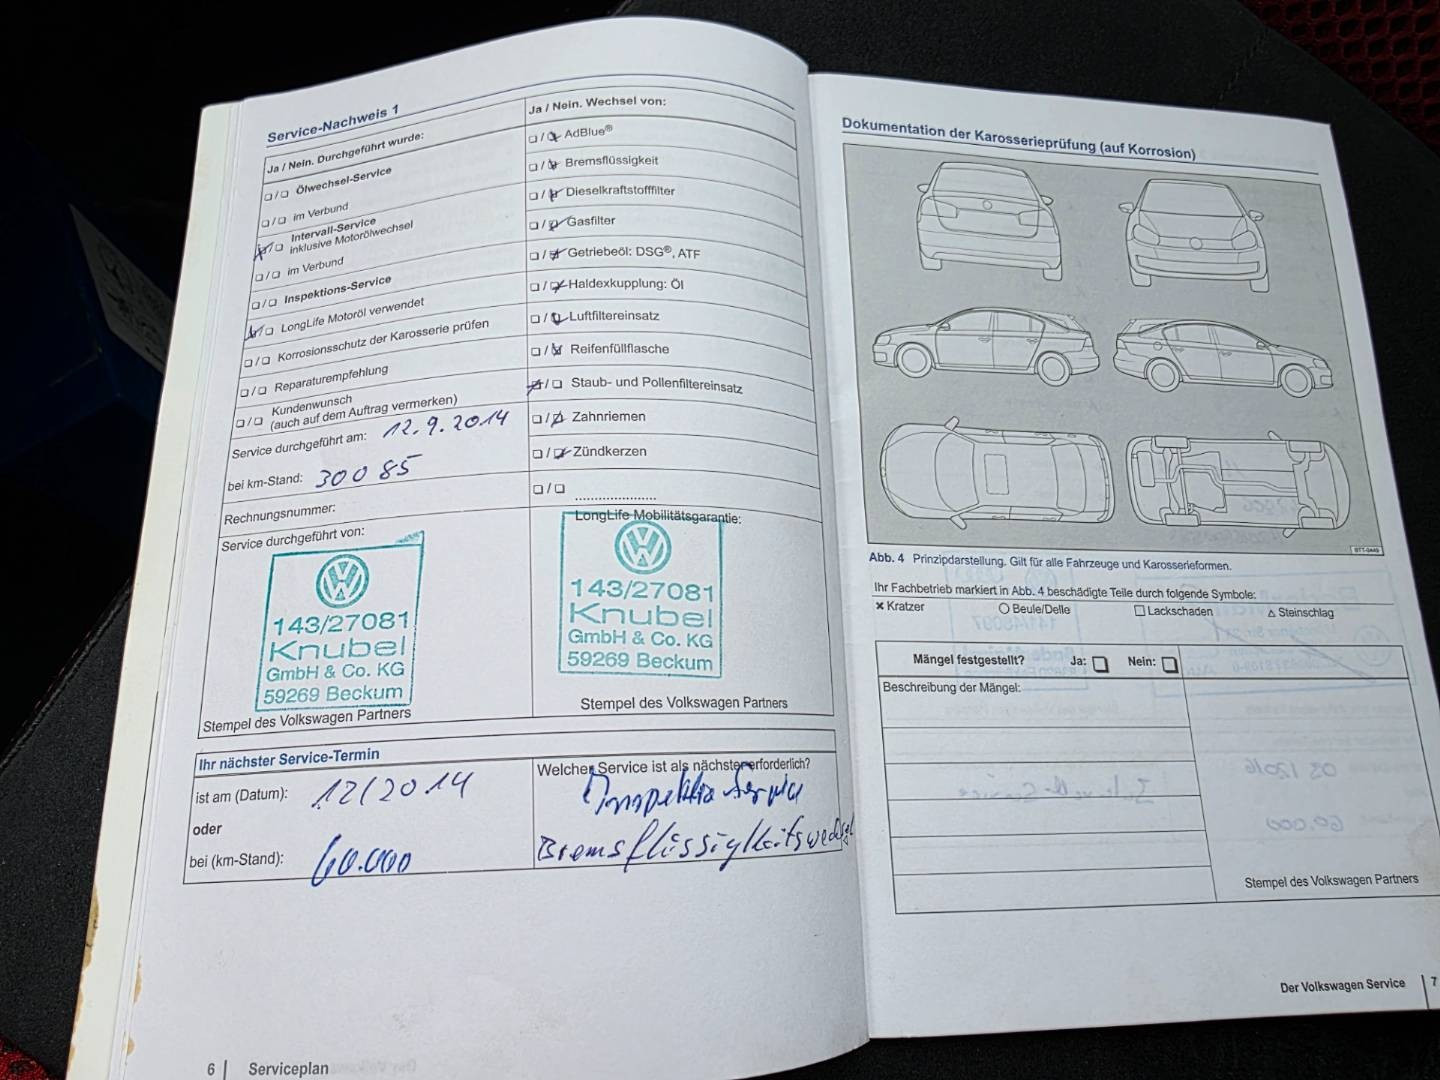 Service-Nachweis 1
Ja / Nein. Durchgeführt wurde:
Ölwechsel-Service
im Verbund
Intervall-Service
inklusive Motorölwechsel
im Verbund
Inspektions-Service
LongLife Motoröl verwendet
Korrosionsschutz der Karosserie prüfen
Reparaturempfehlung
Kundenwunsch
(auch auf dem Auftrag vermerken)
Service durchgeführt am: 12.9.2014
bei km-Stand: 30085
Rechnungsnummer:
Service durchgeführt von:
143/27081
Knubel
GmbH & Co. KG
59269 Beckum
Stempel des Volkswagen Partners
Ja / Nein. Wechsel von:
AdBlue®
Bremsflüssigkeit
Dieselkraftstofffilter
Gasfilter
Getriebeöl: DSG®, ATF
Haldexkupplung: Öl
Luftfiltereinsatz
Reifenfüllflasche
Staub- und Pollenfiltereinsatz
Zahnriemen
Zündkerzen
LongLife Mobilitätsgarantie:
143/27081
Knubel
GmbH & Co. KG
59269 Beckum
Stempel des Volkswagen Partners
Ihr nächster Service-Termin
ist am (Datum): 12/2014
oder
bei (km-Stand): 60.000
Welcher Service ist als nächster erforderlich?
Inspektio Service
Bremsflüssigkeitswechsel
6 | Serviceplan
Dokumentation der Karosserieprüfung (auf Korrosion)
BTT-0449
Abb. 4 Prinzipdarstellung. Gilt für alle Fahrzeuge und Karosserieformen.
Ihr Fachbetrieb markiert in Abb. 4 beschädigte Teile durch folgende Symbole:
Kratzer Beule/Delle Lackschaden Steinschlag
Mängel festgestellt? Ja: Nein:
Beschreibung der Mängel:
Stempel des Volkswagen Partners
Der Volkswagen Service | 7